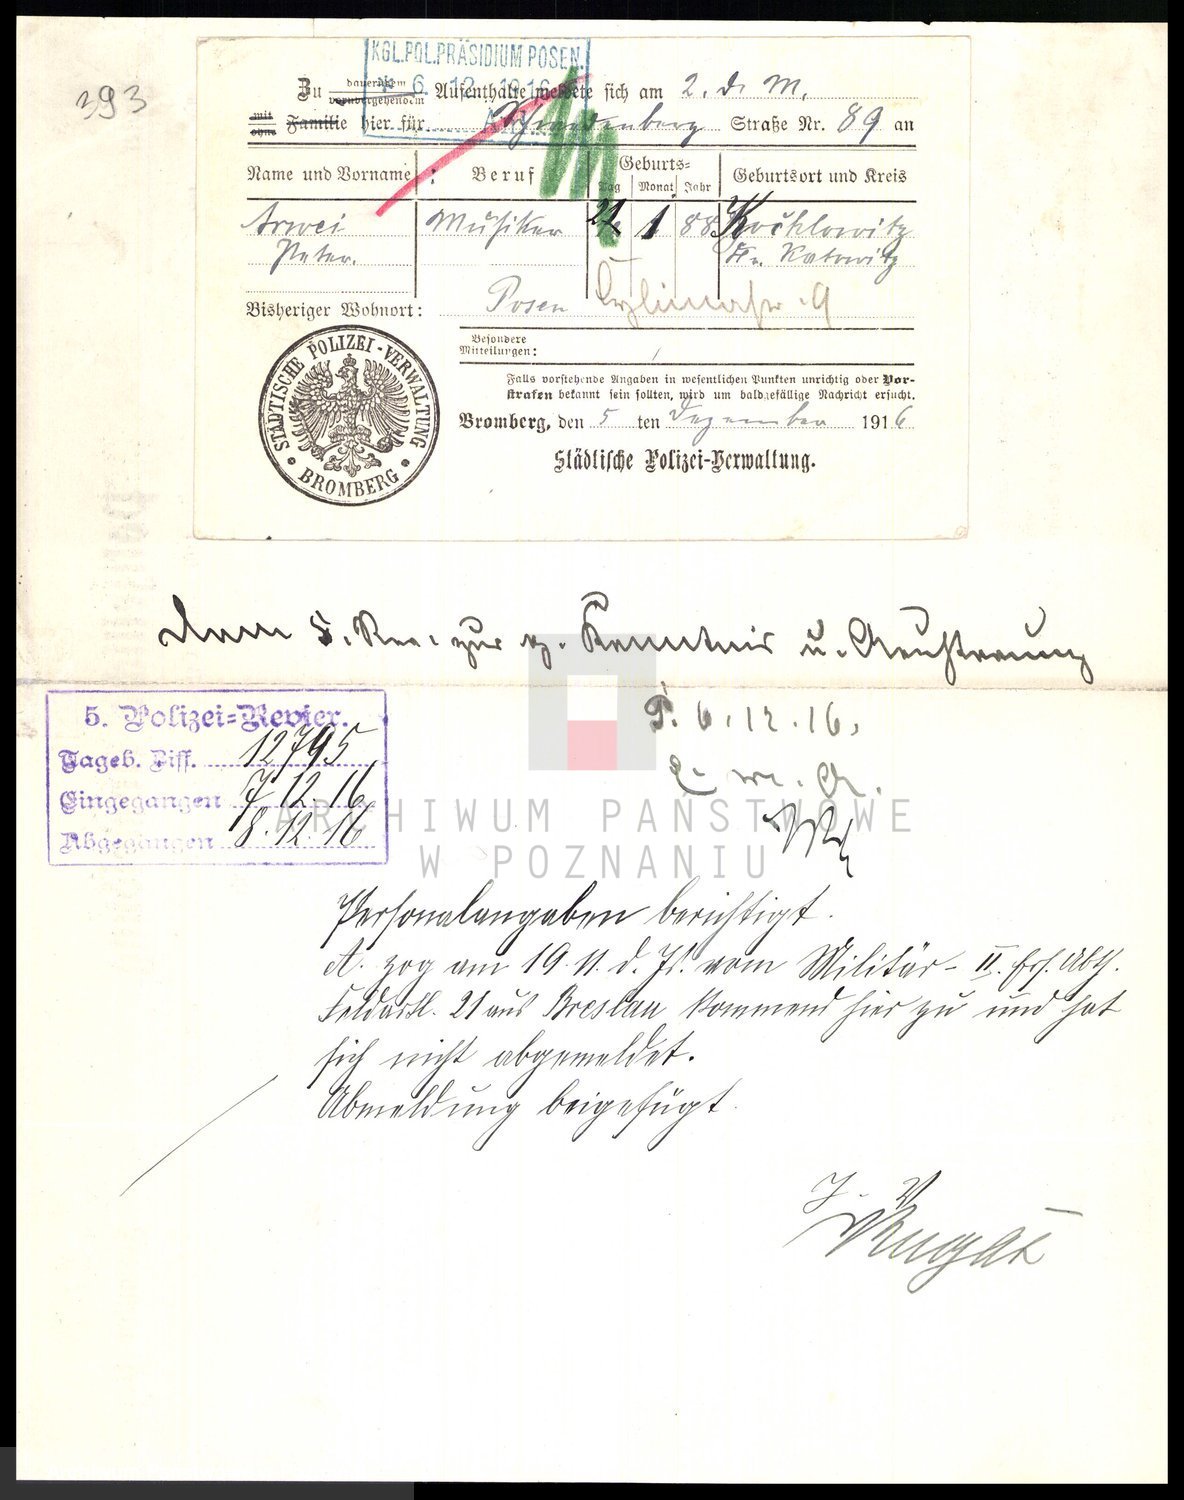 393
KGL.POL.PRÄSIDIUM POSEN.
6. 12. 1916
Zu dauerndem Aufenthalte meldete sich am 2. d. M.
vorübergehendem
mit
ohne Familie hier für Straße Nr. 89 an
Name und Vorname: Beruf Geburts- Geburtsort und Kreis
Tag Monat Jahr
Arwei Musiker 1 88 Kochlowitz
Peter. Kr. Katowitz
Bisheriger Wohnort: Posen
Besondere
Mitteilungen:
Falls vorstehende Angaben in wesentlichen Punkten unrichtig oder Vor-
strafen bekannt sein sollten, wird um baldgefällige Nachricht ersucht.
Bromberg, den 5 ten Dezember 1916
Städtische Polizei-Verwaltung.
STÄDTISCHE POLIZEI-VERWALTUNG
BROMBERG
Dem 5. Rev. zur Kenntnis u. Aeußerung
P. 6.12.16.
5. Polizei-Revier.
Tageb. Ziff. 12795
Eingegangen 7.12.16
Abgegangen 8.12.16
ARCHIWUM PAŃSTWOWE
W POZNANIU
Personalangaben berichtigt.
A. zog am 19.11. d. Js. vom Militär- II. Ers. Abt.
Feldartl. 21 aus Breslau kommend hier zu und hat
sich nicht abgemeldet.
Abmeldung beigefügt.
J. V.